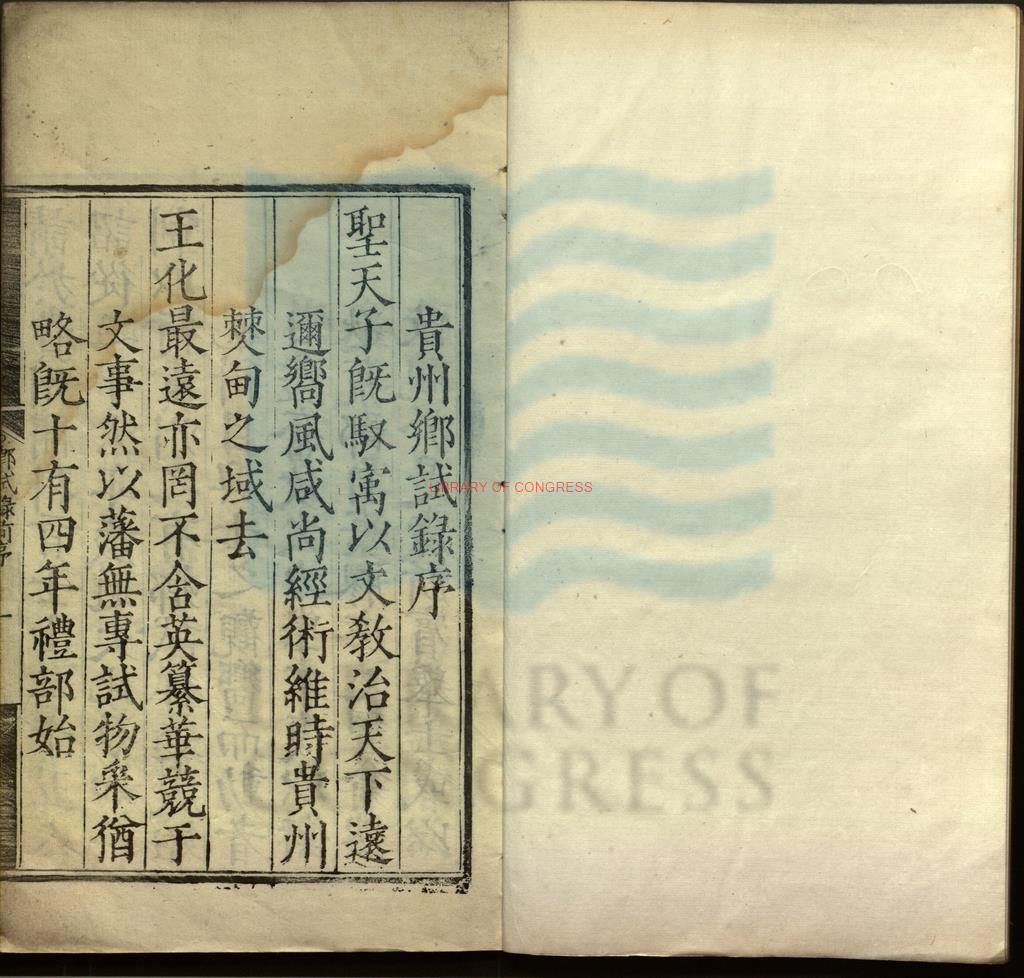 貴州鄉試錄序
聖天子旣馭寓以文教治天下遠
邇嚮風咸尚經術維時貴州
僰甸之域去
王化最遠亦罔不含英纂華競于
文事然以藩無專試物采猶
略旣十有四年禮部始
鄉試錄前序
一
LIBRARY OF CONGRESS
ARY OF
GRESS